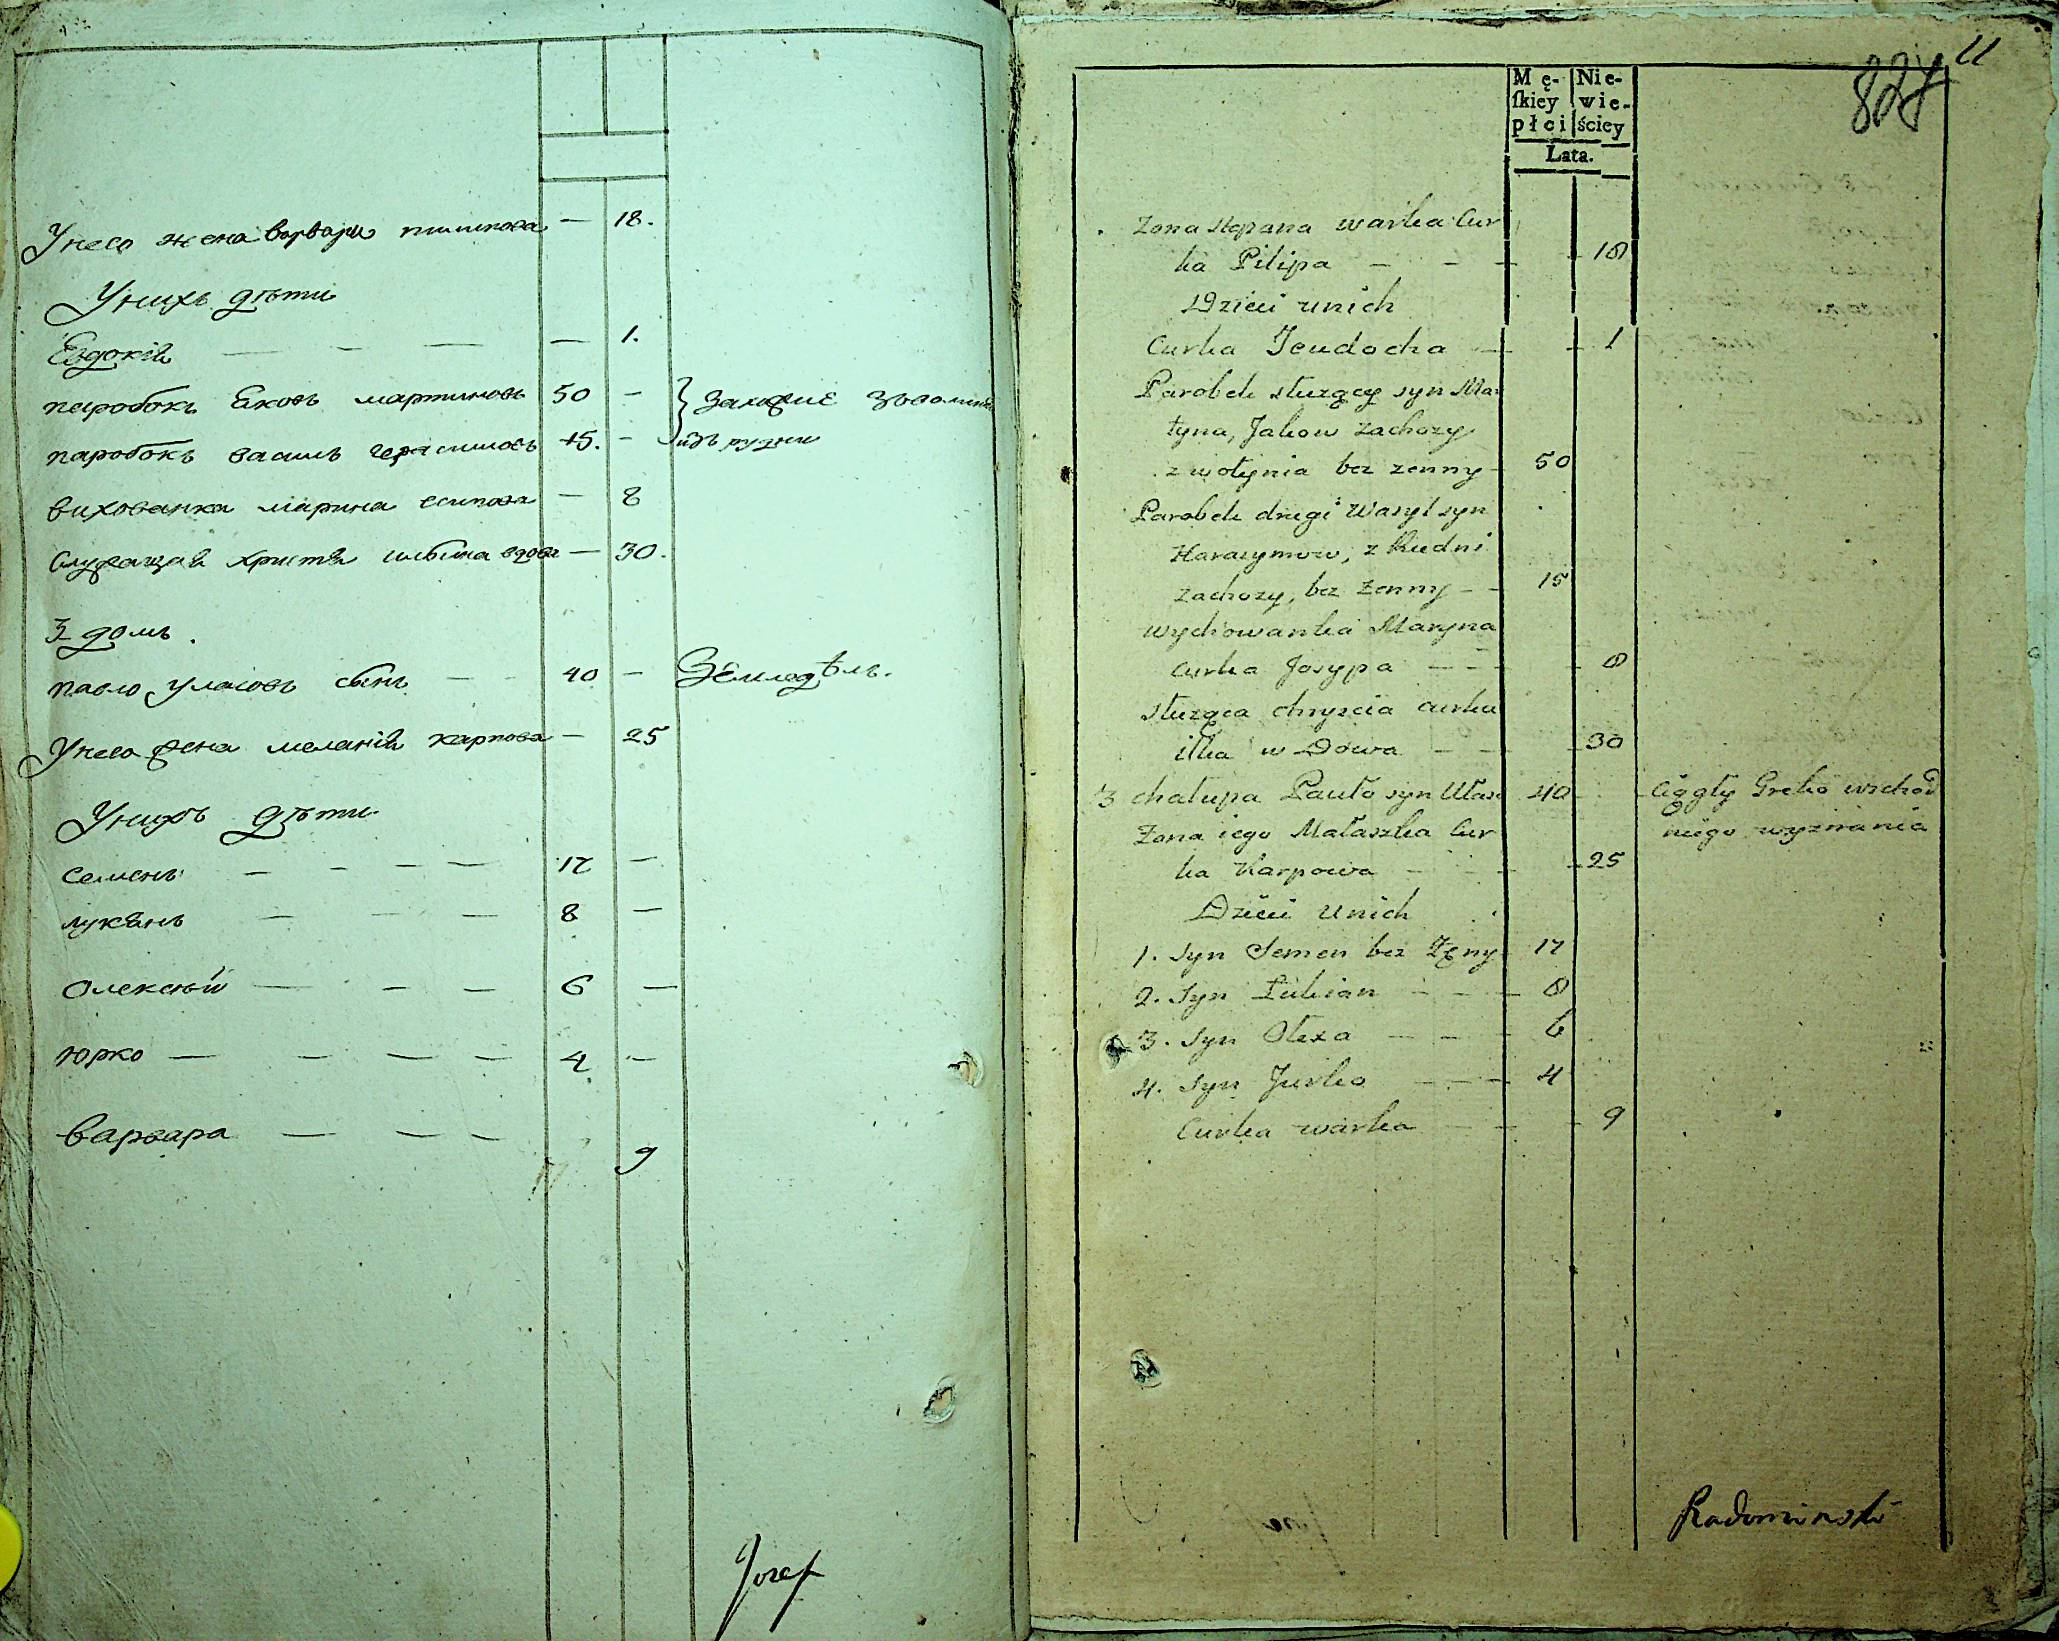 У него жена варвара пилипова — 18.
У нихъ дѣти
Евдокія — — — — 1.
паробокъ Яковъ мартиновъ 50 — захожіе зъволині
паробокъ василь герасимовъ 15. — изъ рудни
вихованка марина есипова — 8
Служащая христя илкова вдова — 30.
3 домъ.
павло уласовъ сынъ — — 40 — Земледѣль.
У него жена меланія карпова — 25
У нихъ дѣти
Семенъ — — — — 17 —
лукянъ — — — 8 —
Олексѣй — — — 6 —
Юрко — — — — 4 —
варвара — — —
9
Jozef
11
827
Mę- Nie-
ſkiey wie-
płci ściey
Lata.
Zona Stepana warka Cur
ka Pilipa — — — 18
Dzieci unich
Curka Jeudocha — — 1
Parobek służący syn Mar
tyna, Jakow zachozy
z wołynia bez zenny — 50
Parobek drugi Wasyl syn
Harasymow, z Rudni
zachozy, bez zenny — — 15
Wychowanka Maryna
curka Josypa — — — 8
służąca chryscia curka
ilka w Dowa — — 30
3 chałupa Pauło syn Ułasa 40 — Ciągły Greko wschod
Zona iego Małaszka Cur niego wyznania
ka Karpowa — — — 25
Dzieci unich
1. Syn Semen bez Zęny 17
2. Syn Łukian — — — 8
3. Syn Ołexa — — — 6
4. Syn Jurko — — — 4
Curka warka — — — 9
Radominski